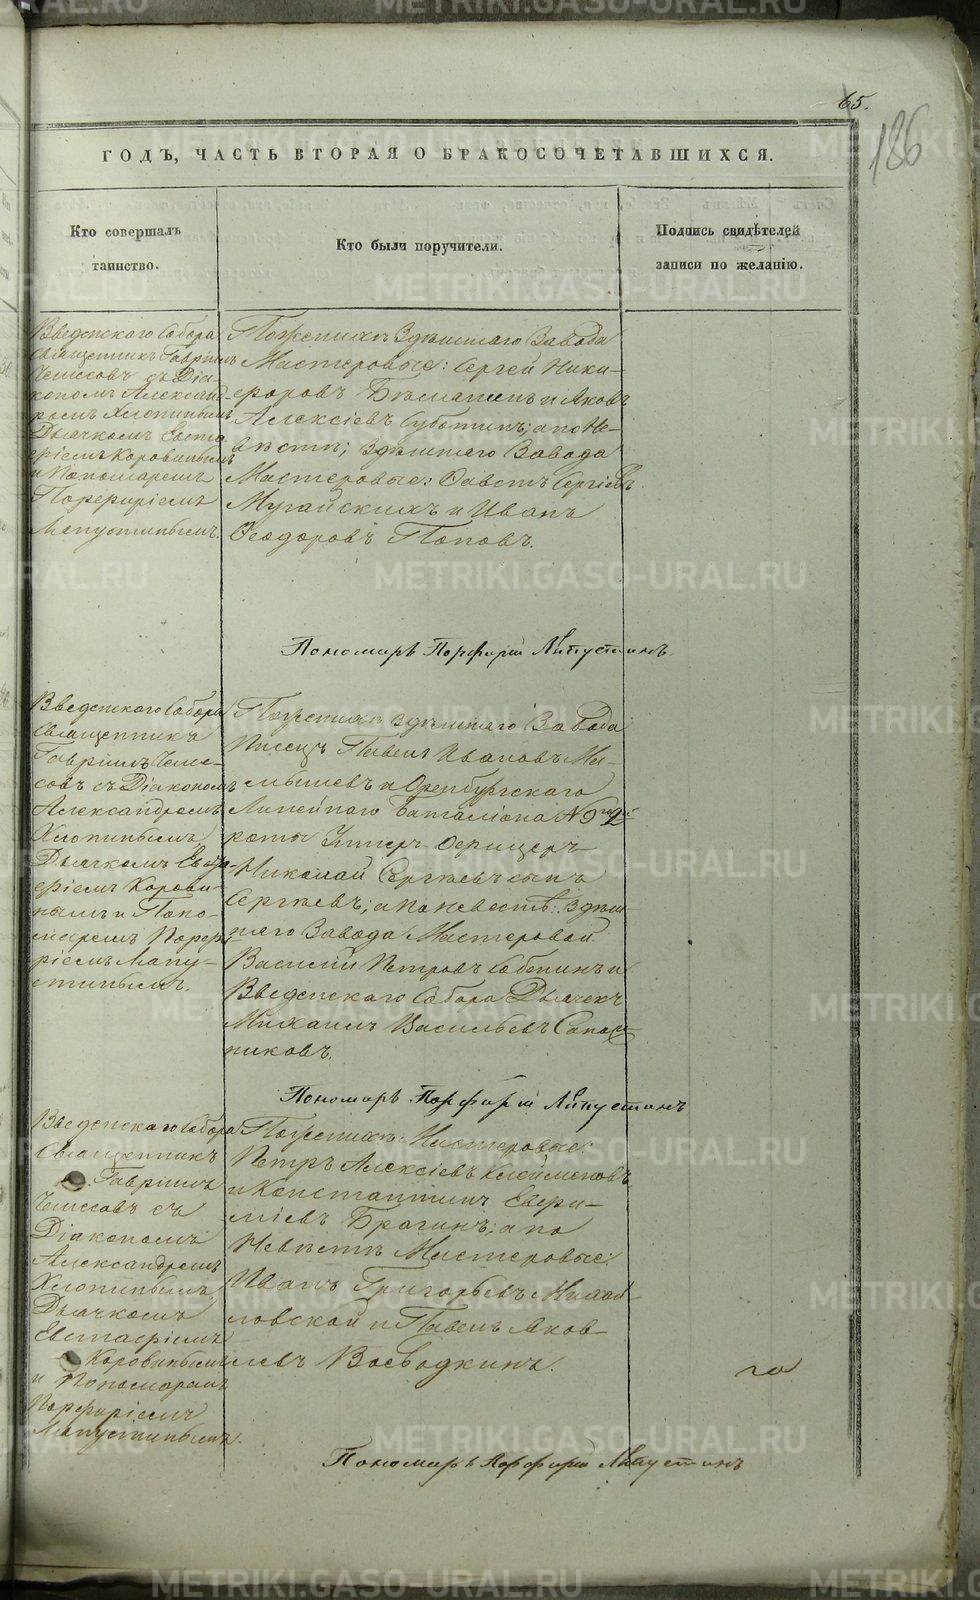 65.
186
ГОДЪ, ЧАСТЬ ВТОРАЯ О БРАКОСОЧЕТАВШИХСЯ.
Кто совершалъ
таинство.
Кто были поручители.
Подпись свидѣтелей
записи по желанію.
Введенскаго Собора
Священникъ Гавріилъ
Чемесовъ съ Діа-
кономъ Александ-
ромъ Хлопинымъ
Дьячкомъ Евста-
фіемъ Коровинымъ
и Пономаремъ
Порфиріемъ
Лапустинымъ.
По женихѣ Здѣшняго Завода
Мастеровые: Сергей Ники-
форовъ и Яковъ
Алексіевъ Суботинъ; а по Не-
вѣстѣ; Здѣшняго Завода
Мастеровые: Фавстъ Сергіевъ
Мугайскихъ и Иванъ
Феодоровъ Поповъ.
Пономарь Порфирій Лапустинъ.
Введенскаго Собора
Священникъ
Гавріилъ Чеме-
совъ съ Діакономъ
Александромъ
Хлопинымъ
Дьячкомъ Евста-
фіемъ Корови-
нымъ и Поно-
маремъ Порфи-
ріемъ Лапу-
стинымъ.
По женихѣ здѣшняго Завода
Писецъ Павелъ Ивановъ
и Оренбургскаго
Линейнаго баталіона №
роты Унтеръ Офицеръ
Николай Сергѣевъ сынъ
Сергѣевъ; а по невѣстѣ: Здѣш-
няго Завода Мастеровой
Василій Петровъ и
Введенскаго Собора Дьячекъ
Михаилъ Васильевъ Сапож-
никовъ.
Пономарь Порфирій Лапустинъ
Введенскаго Собора
Священникъ
Гавріилъ
Чемесовъ съ
Діакономъ
Александромъ
Хлопинымъ
Дьячкомъ
Евстафіемъ
Коровинымъ
и Пономаремъ
Порфиріемъ
Лапустинымъ.
По женихѣ Мастеровые:
Петръ Алексіевъ Клейменовъ
и Константинъ Ефри-
міевъ Брагинъ; а по
Невѣстѣ Мастеровые:
Иванъ Григорьевъ Михай-
ловской и Павелъ Яков-
левъ Воеводкинъ.
Пономарь Порфирій Лапустинъ
METRIKI.GASO-URAL.RU